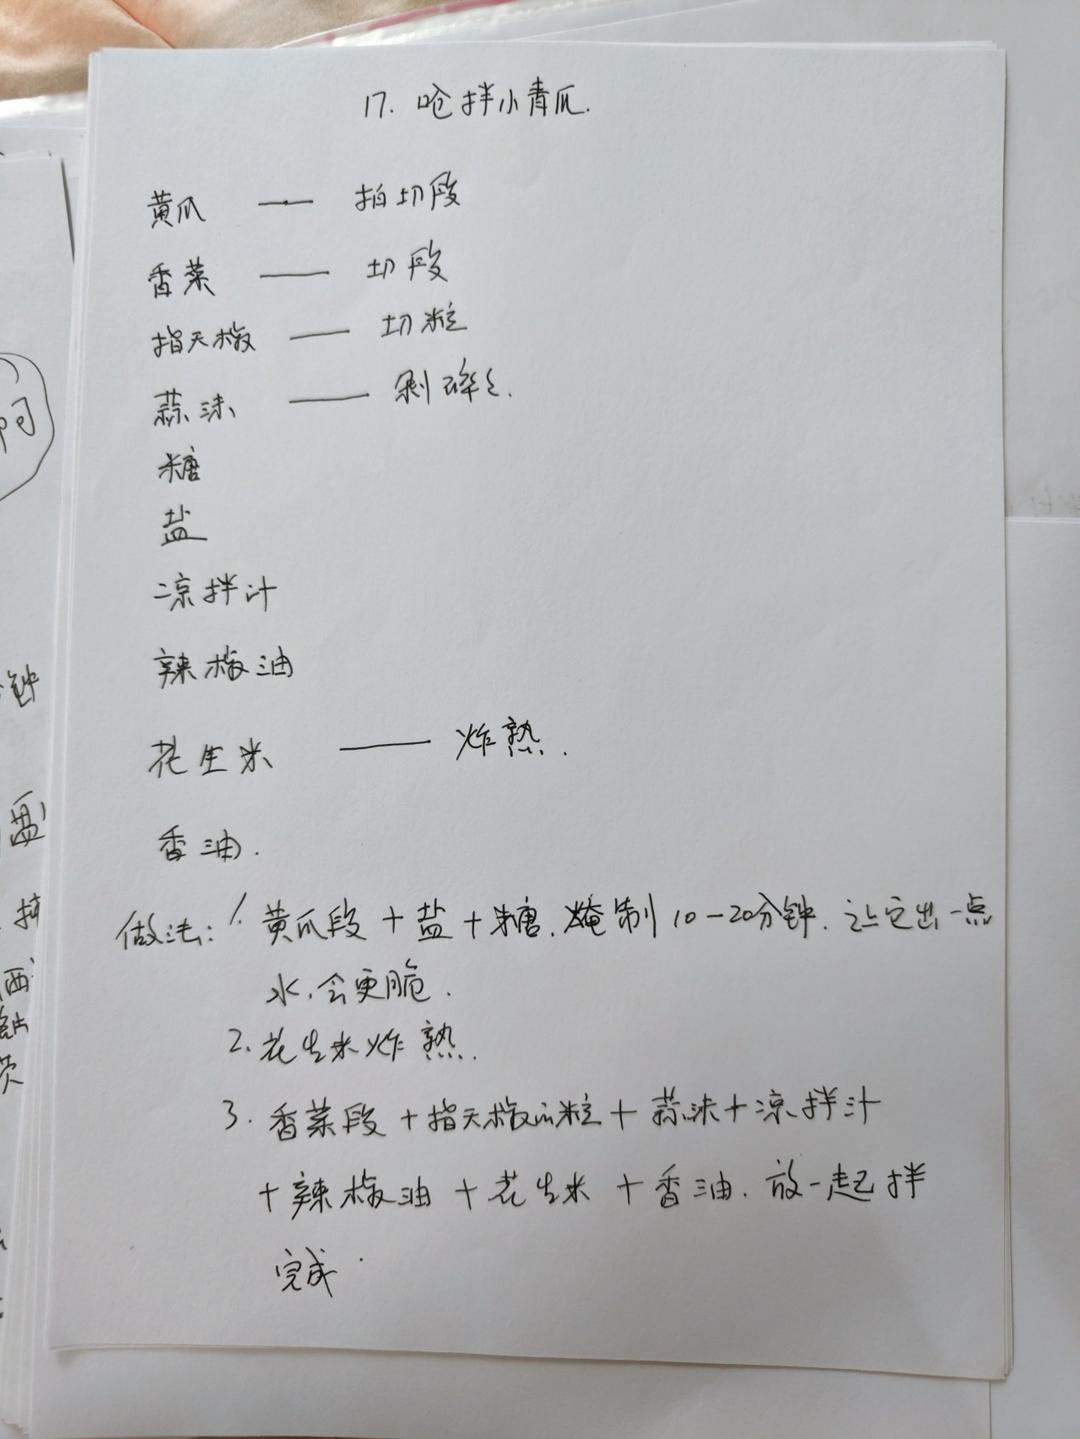 17. 呛拌小青瓜.
黄瓜 —— 拍切段
香菜 —— 切段
指天椒 —— 切粒
蒜沫 —— 剁碎
糖
盐
凉拌汁
辣椒油
花生米 —— 炸熟.
香油.
做法: 1. 黄瓜段+盐+糖.腌制10-20分钟.让它出一点
水,会更脆.
2. 花生米炸熟.
3. 香菜段+指天椒粒+蒜沫+凉拌汁
+辣椒油+花生米+香油.放一起拌
完成.
啊
钟